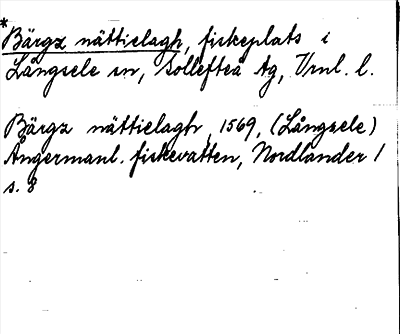 *
Bärgz nättielagh, fiskeplats i
Långsele sn, Sollefteå tg, Vrnl. l.
Bärgz nättielagh, 1569, (Långsele)
Ångermanl. fiskevatten, Nordlander 1
s. 8